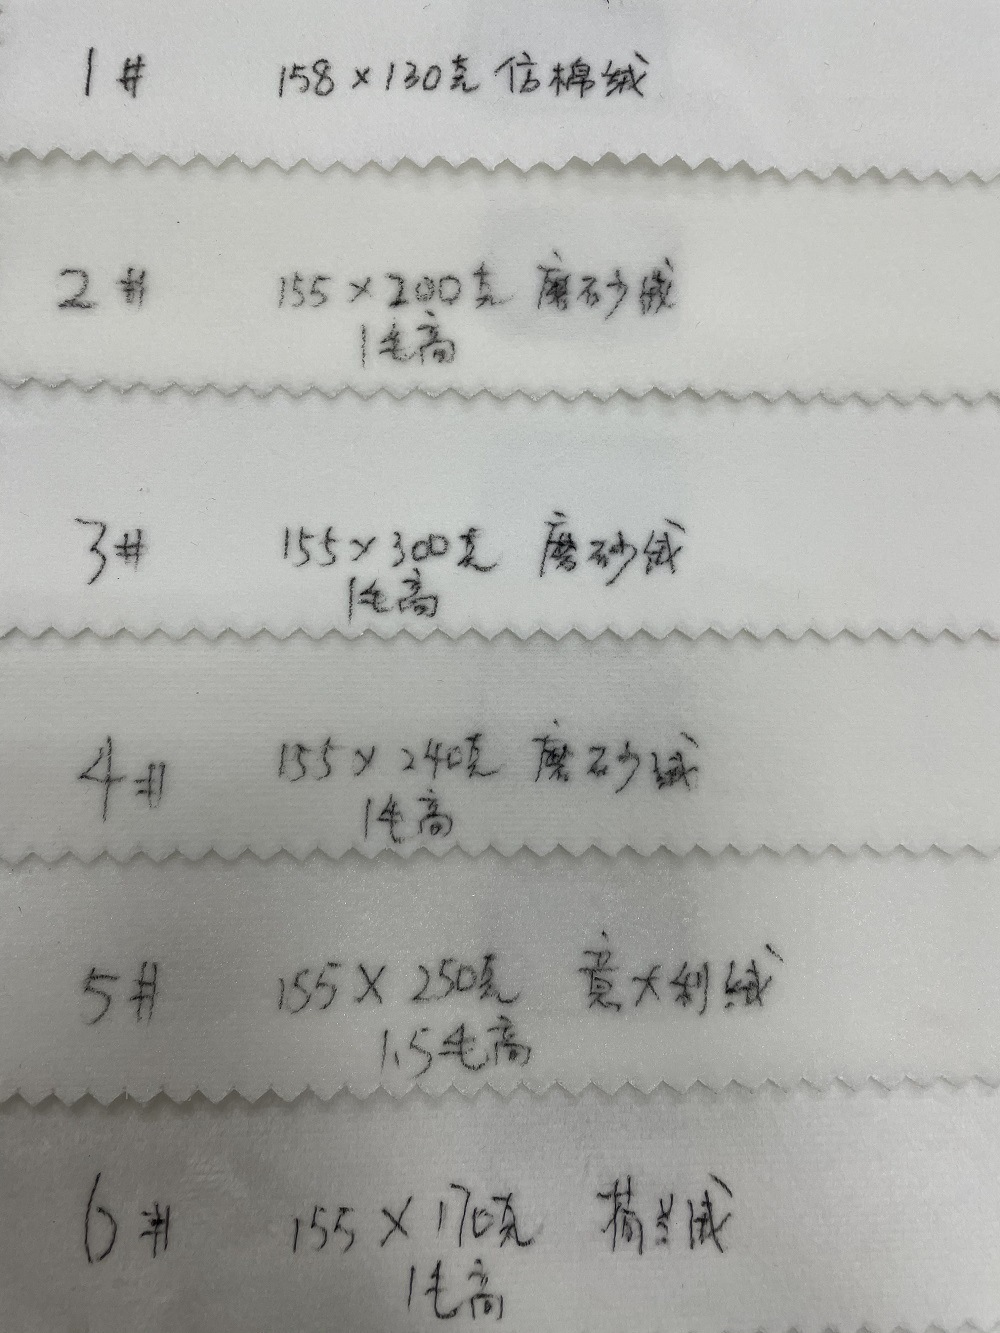 1# 158×130克 仿棉绒
2# 155×200克 磨砂绒
1毛高
3# 155×300克 磨砂绒
1毛高
4# 155×240克 磨砂绒
1毛高
5# 155×250克 意大利绒
1.5毛高
6# 155×170克 荷兰绒
1毛高